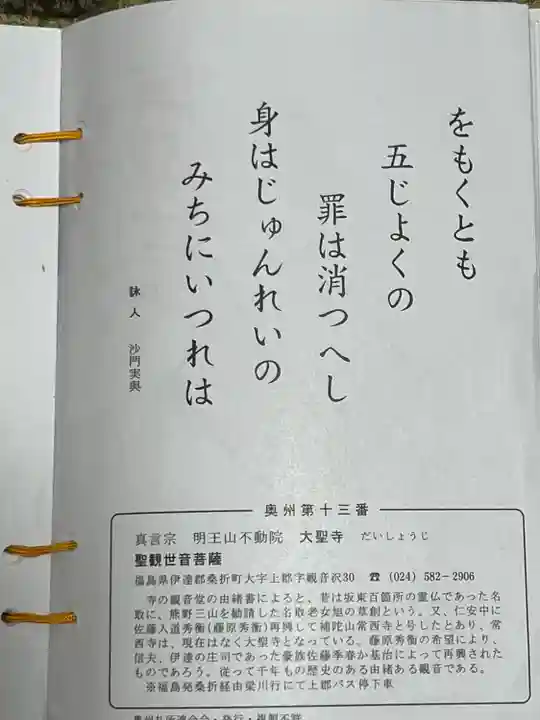 をもくとも
五じよくの
罪は消つへし
身はじゅんれいの
みちにいつれは
詠人 沙門実興
奥州第十三番
真言宗 明王山不動院 大聖寺 だいしょうじ
聖観世音菩薩
福島県伊達郡桑折町大字上郡字観音沢30 ☎(024)582-2906
寺の観音堂の由緒書によると、昔は坂東百箇所の霊仏であった名
取に、熊野三山を勧請した名取老女旭の草創という。又、仁安中に
佐藤入道秀衡(藤原秀衡)再興して補陀山常西寺と号したとあり、常
西寺は、現在はなく大聖寺となっている。藤原秀衡の希望により、
信夫、伊達の庄司であった豪族佐藤季春か基治によって再興された
ものであろう。従って千年もの歴史のある由緒ある観音である。
※福島発桑折経由梁川行にて上郡バス停下車
奥州札所連合会・発行・複製不許